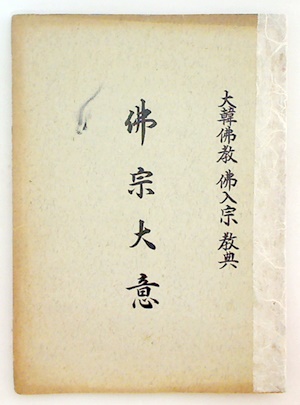 大韓佛教 佛入宗 教典
佛宗大意